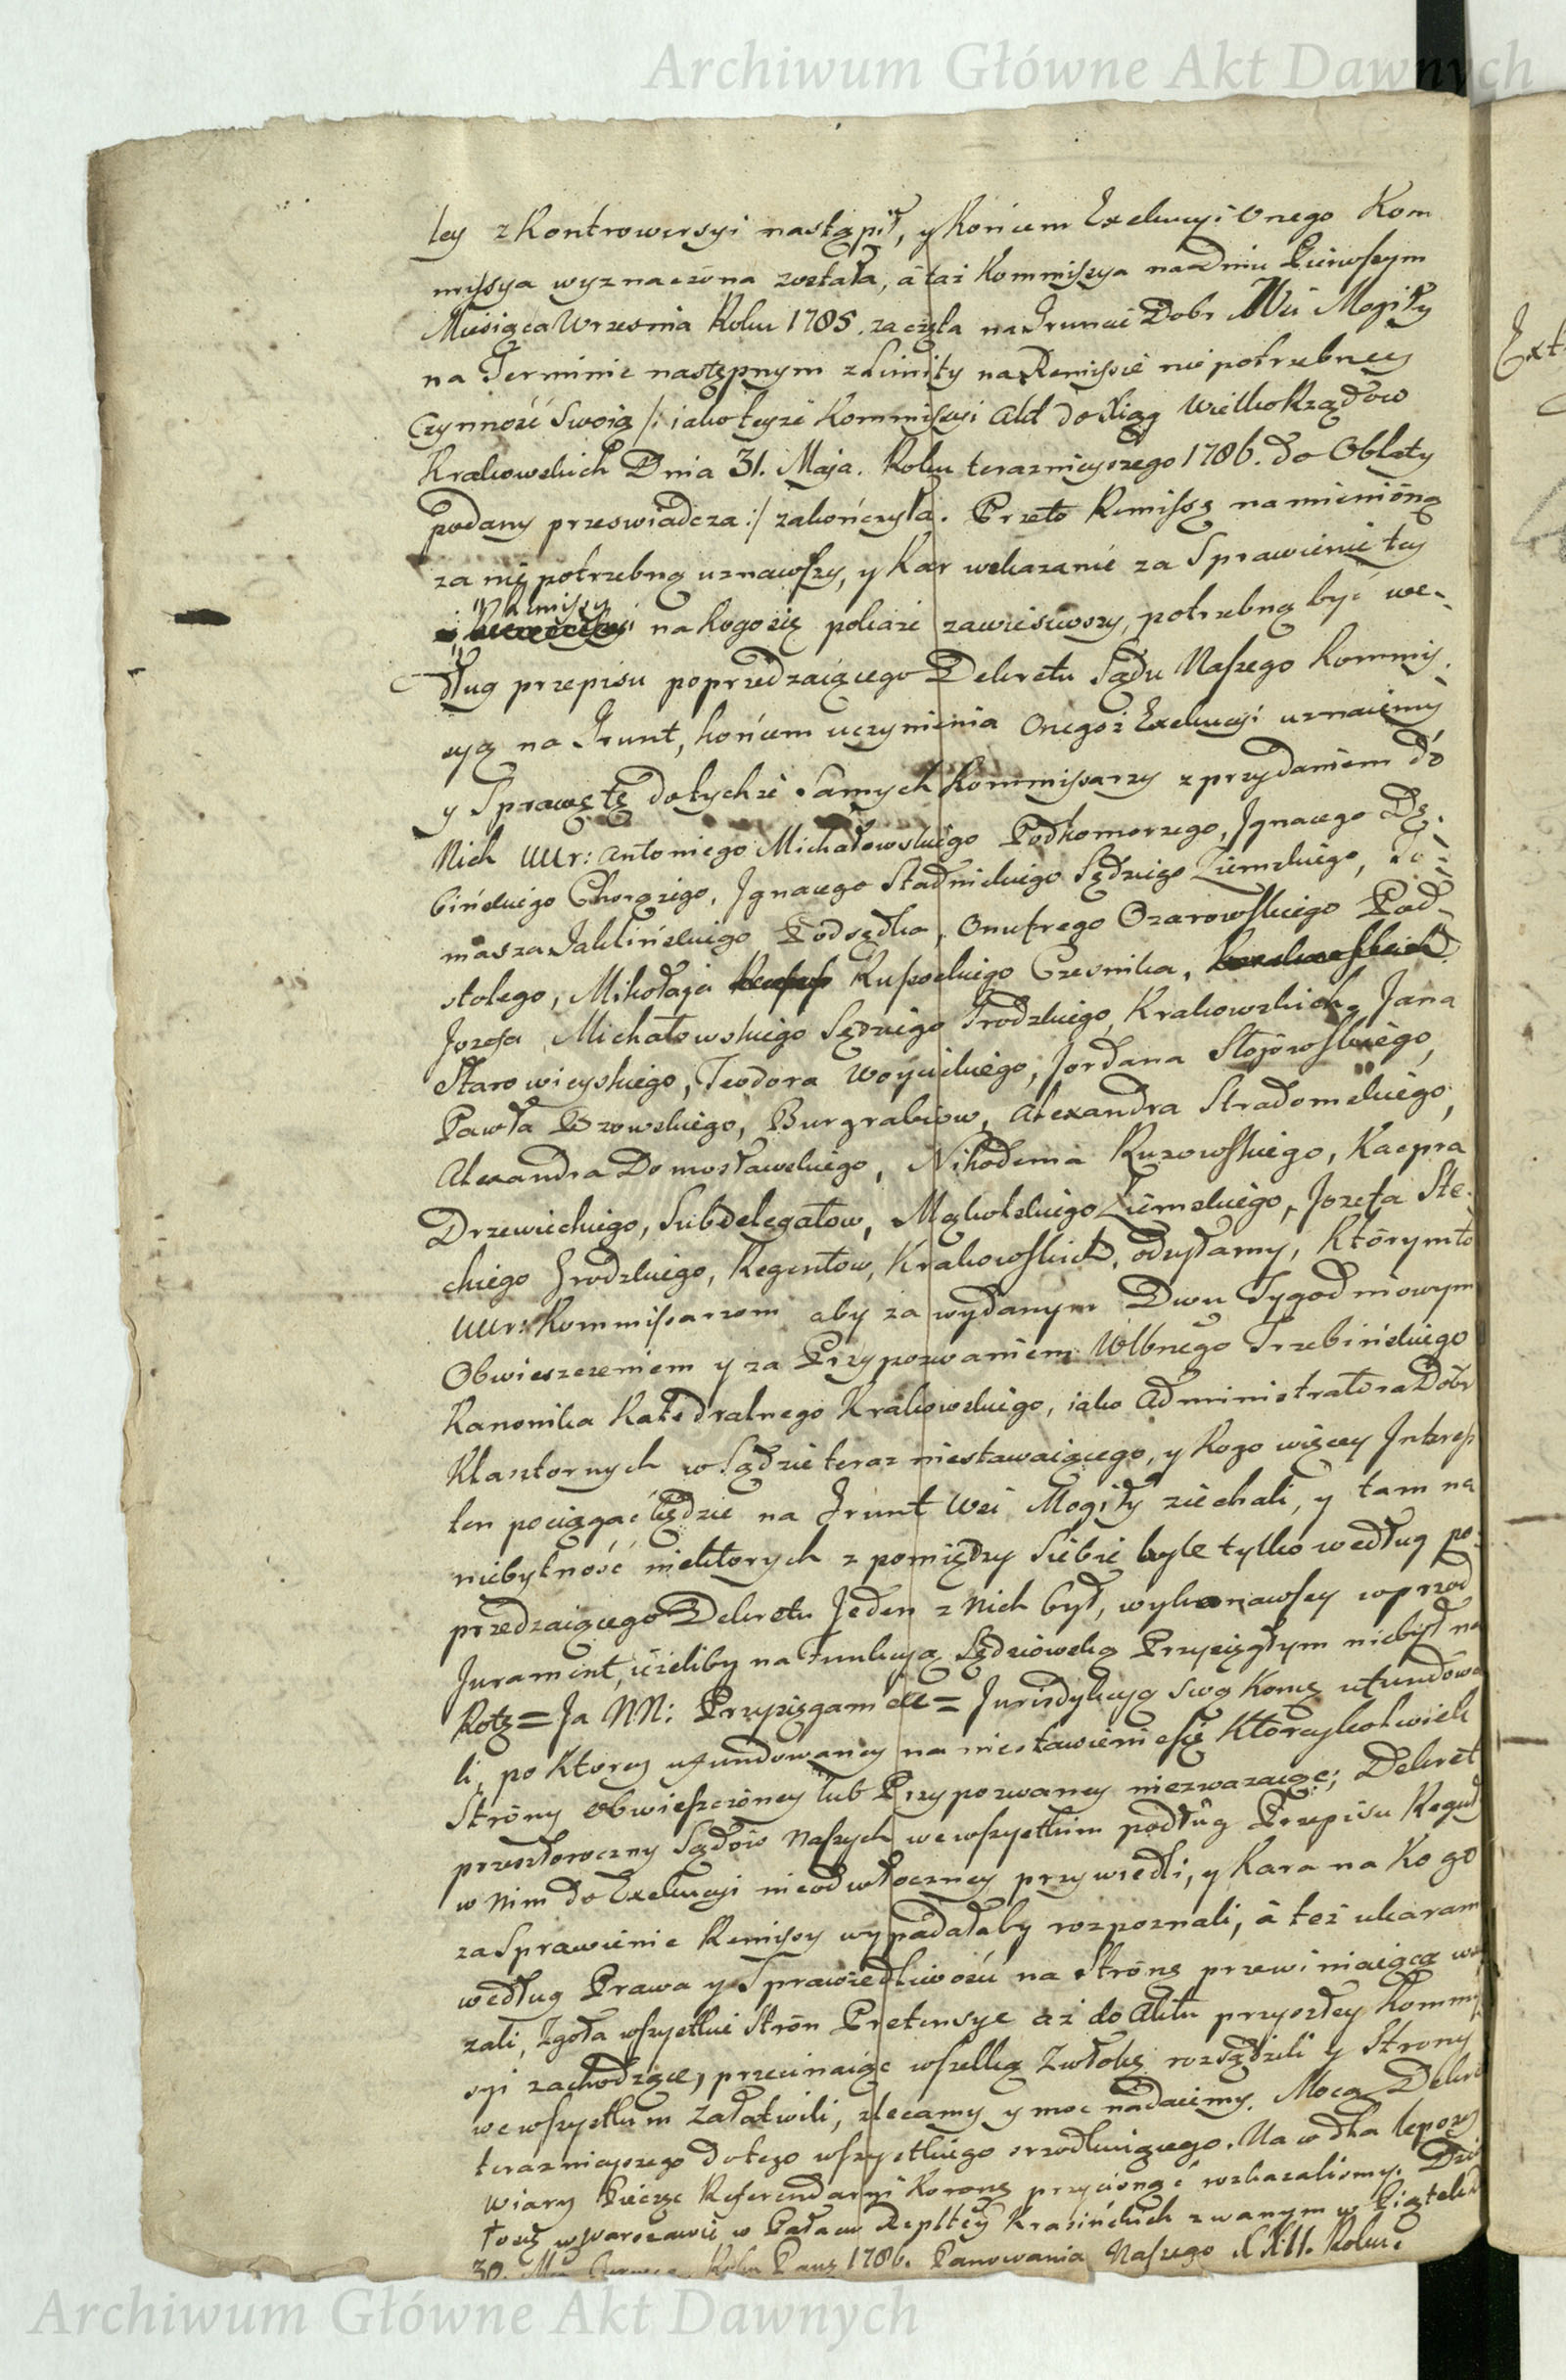 Archiwum Główne Akt Dawnych
tey z Kontrowersyi nastąpił, y Końcem Exekucyi Onego Kom
myssya wyznaczona została, á taż Kommissya na dniu Pierwszym
Miesiąca Wrzesnia Roku 1785. zaczęta na Gruncie Dobr Wsi Mogiły
na Terminie następnym z Limity na Remissie nie potrzebney
Czynność Swoią /: iako teyże Kommissyi Akt do Xiąg Wielko Rządow
Krakowskich Dnia 31. Maja. Roku teraznieyszego 1786. do Oblaty
podany przeswiadcza :/ zakończyła. Przeto Remissę namienioną
za nie potrzebną uznawszy, y Kar wskazanie za Sprawienie tey
Remissy
na kogo się pokaże zawiesiwszy, potrzebną być we-
dług przepisu poprzedzaiącego Dekretu Sądu Naszego Kommis
syą na Grunt, końcem uczynienia Onegoż Exekucyi uznaiemy
y Sprawę tę do tychże Samych Kommissarzy z przydaniem do
Nich UUr: Antoniego Michałowskiego Podkomorzego, Jgnacego Dę-
bińskiego Chorążego, Jgnacego Stadnickiego Sędziego Ziemskiego, To-
masza Jaklińskiego Podsędka, Onufrego Ozarowskiego Pod-
stolego, Mikołaja Russockiego Czesnika,
Jozefa Michałowskiego Sędziego Grodzkiego, Krakowskich, Jana
Starowieyskiego, Teodora Woycickiego, Jordana Stojowskiego,
Pawła Bzowskiego, Burgrabiow, Alexandra Stradomskiego,
Alexandra Domosławskiego, Nikodema Kurowskiego, Kacpra
Drzewieckiego, Subdelegatow, Mąkolskiego Ziemskiego, Jozefa Ste-
ckiego Grodzkiego, Regentow, Krakowskich, odsyłamy, Którymto
UUr: Kommissarzom aby za wydanym Dwu Tygodniowym
Obwieszczeniem y za Przypozwaniem Wlbnego Trzebińskiego
Kanonika Katedralnego Krakowskiego, iako Administratora Dobr
Klasztornych w Sądzie teraz niestawaiącego, y Kogo więcey Jnteress
ten pociągać będzie na Grunt Wsi Mogiły ziechali, y tam na
niebytność niektorych z pomiędzy Siebie byle tylko według po-
przedzaiącego Dekretu Jeden z Nich był, wykonawszy wprzod
Jurament, ieżeliby na Funkcyą Sędziowską Przysięgłym niebył na
Rotę = Ja NN: Przysięgam etc = Jurisdykcyą swą Kommę ufundowa
li, po Ktorey ufundowaney na niestawienie się Ktoreykolwiek
Strony obwieszczoney lub Przypozwaney niezwazaiąc, Dekret
przeszłoroczny Sądów Naszych we wszystkim podług Przepisu Reguł
w Nim do Exekucyi nieodwłoczney przywiedli, y Kara na Kogo
za Sprawienie Remissy wypadałaby rozpoznali, á też ukaranie
według Prawa y Sprawiedliwości na Stronę przewiniaiącą wska
zali, Zgoła wszystkie Stron Pretensye aż do Aktu przyszłey Kommis
syi zachodzące, przecinaiąc wszelką Zwłokę rozsądzili y Strony
we wszystkim Załatwili, zlecamy y moc nadaiemy. Mocą Dekretu
teraznieyszego do tego wszystkiego srzodkuiącego. Na co dla lepszey
Wiary Pieczęć Referendaryi Korony przycisnąć rozkazaliśmy. Dzia
ło się w Warszawie w Pałacu Rzpltey Krasińskich zwanym w Piątek
30. Mca Czerwca. Roku Pańs 1786. Panowania Naszego XXII. Roku.
Archiwum Główne Akt Dawnych